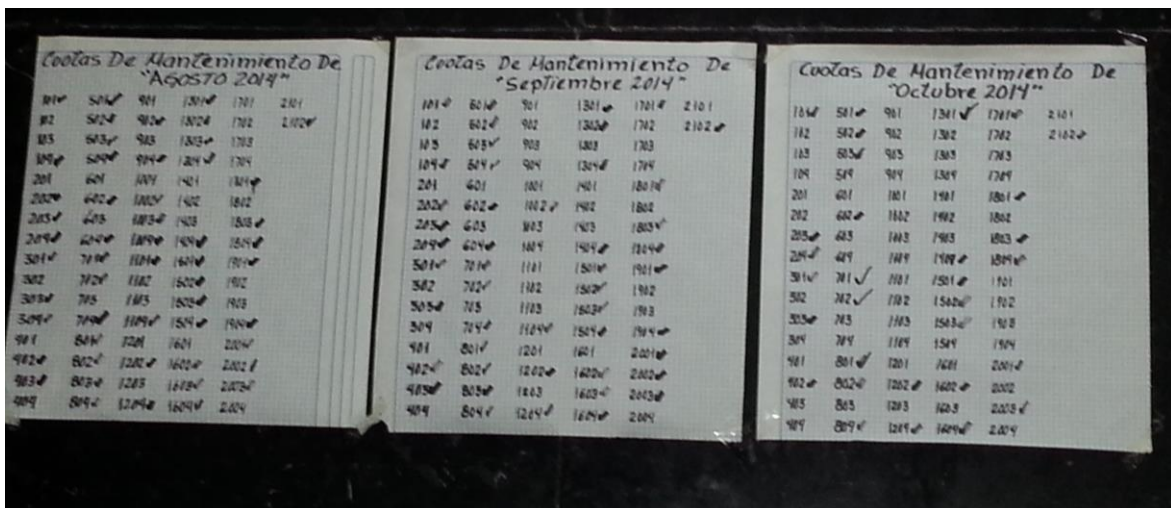 Cuotas De Mantenimiento De
"AGOSTO 2014"
101✓ 501✓ 901 1301✓ 1701 2101
102 502✓ 902✓ 1302✓ 1702 2102✓
103 503✓ 903 1303✓ 1703
104✓ 504✓ 904✓ 1304✓ 1704
201 601 1001 1401 1801✓
202✓ 602✓ 1002✓ 1402 1802
203✓ 603 1003✓ 1403 1803✓
204✓ 604✓ 1004✓ 1404✓ 1804✓
301✓ 701✓ 1101✓ 1501✓ 1901✓
302 702✓ 1102 1502✓ 1902
303✓ 703 1103 1503✓ 1903
304✓ 704✓ 1104✓ 1504✓ 1904✓
401 801✓ 1201 1601 2001✓
402✓ 802✓ 1202✓ 1602✓ 2002✓
403✓ 803✓ 1203 1603✓ 2003✓
404 804✓ 1204✓ 1604✓ 2004
Cuotas De Mantenimiento De
"Septiembre 2014"
101✓ 501✓ 901 1301✓ 1701✓ 2101
102 502✓ 902 1302✓ 1702 2102✓
103 503✓ 903 1303 1703
104✓ 504✓ 904 1304✓ 1704
201 601 1001 1401 1801✓
202✓ 602✓ 1002✓ 1402 1802
203✓ 603 1003 1403 1803✓
204✓ 604✓ 1004 1404✓ 1804✓
301✓ 701✓ 1101 1501✓ 1901✓
302 702✓ 1102 1502✓ 1902
303✓ 703 1103 1503✓ 1903
304 704✓ 1104✓ 1504✓ 1904✓
401 801✓ 1201 1601 2001✓
402✓ 802✓ 1202✓ 1602✓ 2002✓
403✓ 803✓ 1203 1603✓ 2003✓
404 804✓ 1204✓ 1604✓ 2004
Cuotas De Mantenimiento De
"Octubre 2014"
101✓ 501✓ 901 1301✓ 1701✓ 2101
102 502✓ 902 1302 1702 2102✓
103 503✓ 903 1303 1703
104 504 904 1304 1704
201 601 1001 1401 1801✓
202 602✓ 1002 1402 1802
203✓ 603 1003 1403 1803✓
204✓ 604 1004 1404✓ 1804✓
301✓ 701✓ 1101 1501✓ 1901
302 702✓ 1102 1502✓ 1902
303✓ 703 1103 1503✓ 1903
304 704 1104 1504 1904
401 801✓ 1201 1601 2001✓
402✓ 802✓ 1202✓ 1602✓ 2002
403 803 1203 1603 2003✓
404 804✓ 1204✓ 1604✓ 2004